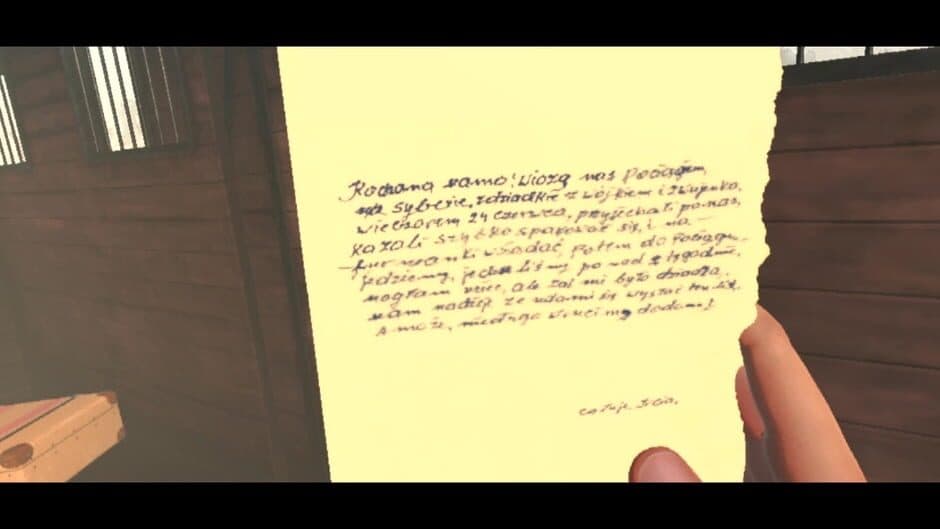 Kochana mamo! Wiozą nas Pociągiem
na syberie, z dziadkiem z wójkiem i
wieczorem 24 czerwca, przyjechali po nas,
kazali szybko spakować się, i na
furmanki wsadać, Potem do Pociągu.
jedziemy, jechaliśmy ponad 2 tygodnie,
mogłam uciec, ale żal mi było dziadka.
mam nadzieje ze uda mi się wysłać ten list,
a może, niedługo wrócimy do domu!
całuje